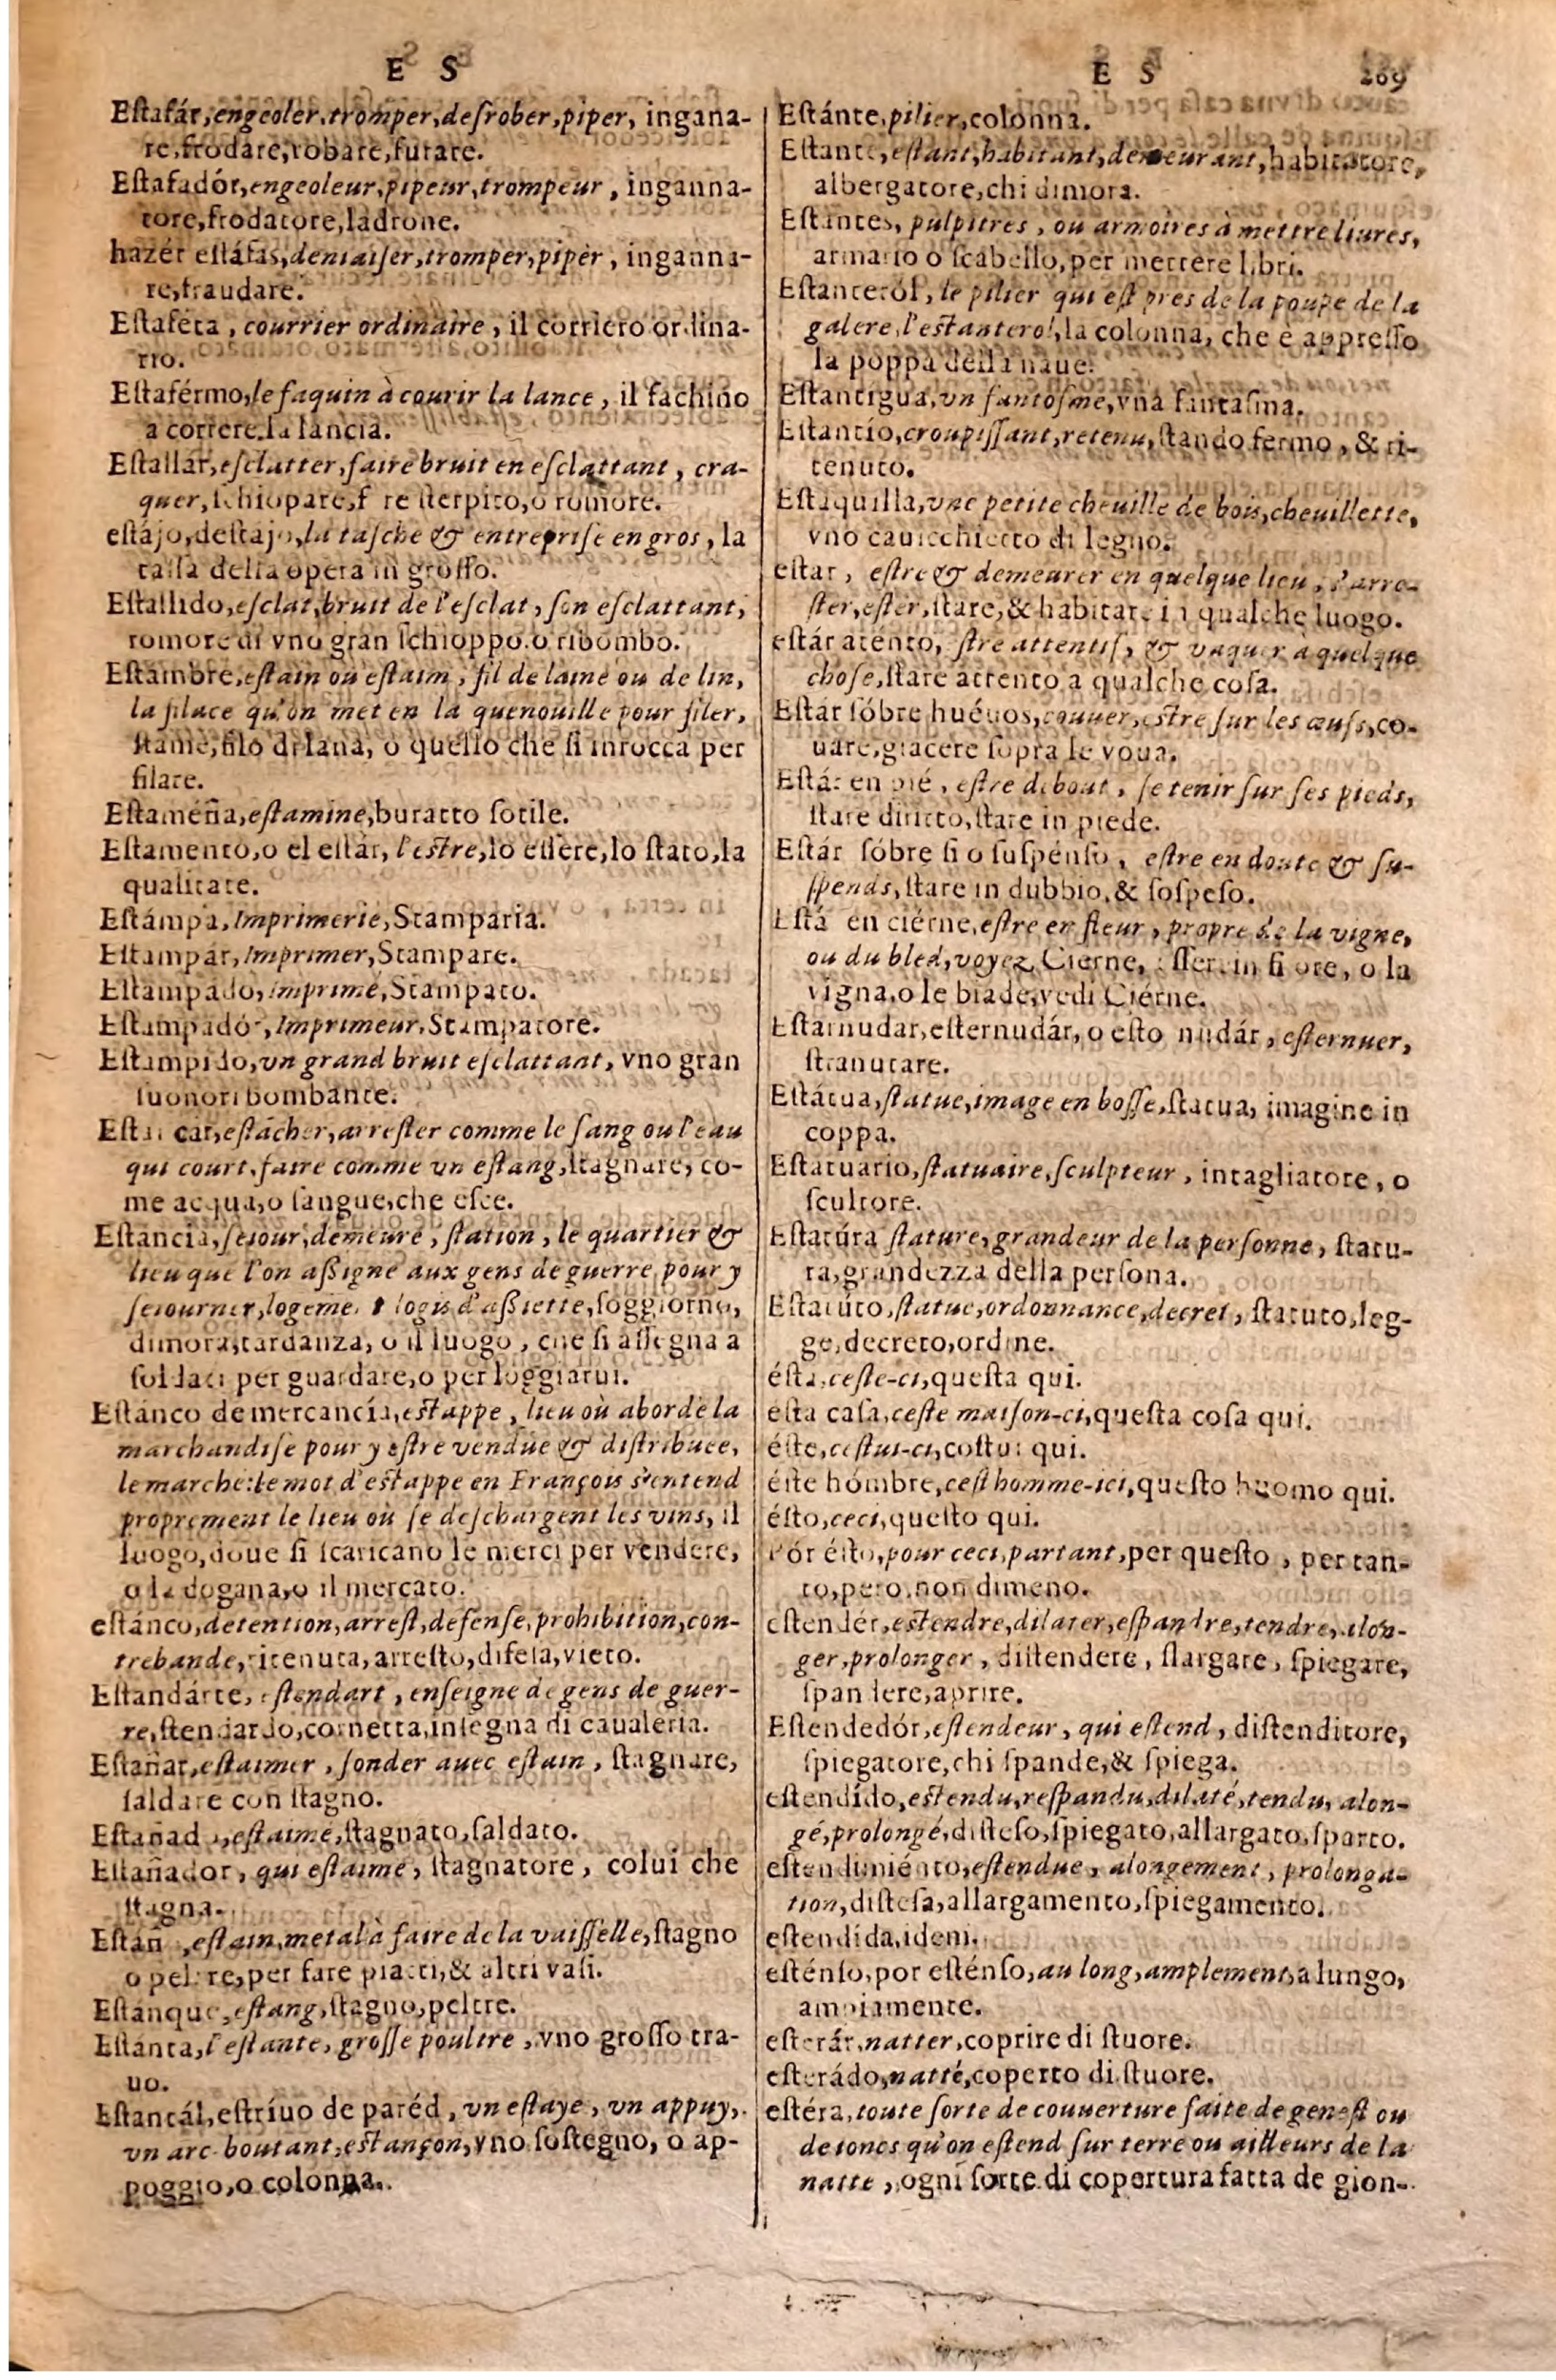 E S
Estafár, engeoler, tromper, desrober, piper, ingana-
re, frodare, robare, furare.
Estafadór, engeoleur, pipeur, trompeur, inganna-
tore, frodatore, ladrone.
hazér estáfas, deniaiser, tromper, piper, inganna-
re, fraudare.
Estaféta, courrier ordinaire, il corriero ordina-
rio.
Estaférmo, le faquin à courir la lance, il fachino
a correre la lancia.
Estallár, esclatter, faire bruit en esclattant, cra-
quer, schiopare, f re sterpito, o romore.
estájo, destajo, la tasche & entreprise en gros, la
tassa della opera in grosso.
Estallido, esclat, bruit de l'esclat, son esclattant,
romore di vno gran schioppo o ribombo.
Estambre, estain ou estaim, fil de laine ou de lin,
la filace qu'on met en la quenouille pour filer,
stame, filo di lana, o quello che si inrocca per
filare.
Estaméña, estamine, buratto sotile.
Estamento, o el estár, l'estre, lo essere, lo stato, la
qualitate.
Estámpa, Imprimerie, Stamparia.
Estampár, Imprimer, Stampare.
Estampádo, imprimé, Stampato.
Estampadór, Imprimeur, Stampatore.
Estampido, vn grand bruit esclattant, vno gran
suono ribombante.
Estancar, estácher, arrester comme le sang ou l'eau
qui court, faire comme vn estang, stagnare, co-
me acqua, o sangue, che esce.
Estáncia, seiour, demeure, station, le quartier &
lieu que l'on assigne aux gens de guerre pour y
seiourner, logemet logis d'assiette, soggiorno,
dimora, tardanza, o il luogo, che si assegna a
soldati per guardare, o per loggiarui.
Estánco de mercancía, estappe, lieu où aborde la
marchandise pour y estre vendue & distribuee,
le marche: Le mot d'estappe en François s'entend
proprement le lieu où se deschargent les vins, il
luogo, doue si scaricano le merci per vendere,
o la dogana, o il mercato.
estánco, detention, arrest, defense, prohibition, con-
trebande, ritenuta, arresto, difesa, vieto.
Estandárte, estendart, enseigne de gens de guer-
re, stendardo, cornetta, insegna di caualeria.
Estañar, estaimer, sonder auec estain, stagnare,
saldare con stagno.
Estañado, estaimé, stagnato, saldato.
Estañador, qui estaime, stagnatore, colui che
stagna.
Estáñ , estain, metal à faire de la vaisselle, stagno
o peltre, per fare piatti, & altri vasi.
Estánque, estang, stagno, peltre.
Estánta, l'estante, grosse poultre, vno grosso tra-
uo.
Estantál, estríuo de paréd, vn estaye, vn appuy,
vn arc-boutant, estançon, vno sostegno, o ap-
poggio, o colonna.
E S 209
Estánte, pilier, colonna.
Estante, estant, habitant, demeurant, habitatore,
albergatore, chi dimora.
Estantes, pulpitres, ou armoires à mettre liures,
armario o scabello, per mettere libri.
Estanterol, le pilier qui est pres de la poupe de la
galere, l'estanterol, la colonna, che è appresso
la poppa della naue.
Estantigua, vn fantosme, vna fantasma.
Estantío, croupissant, retenu, stando fermo, & ri-
tenuto.
Estaquilla, vne petite cheuille de bois, cheuillette,
vno cauicchietto di legno.
estar, estre & demeurer en quelque lieu, s'arre-
ster, ester, stare, & habitare in qualche luogo.
estár aténto, stre attentif, & vaquer à quelque
chose, stare attento a qualche cosa.
Estár sóbre huéuos, couuer, estre sur les œufs, co-
uare, giacere sopra le voua.
Estár en pié, estre debout, se tenir sur ses pieds,
stare diritto, stare in piede.
Estár sóbre si o suspénso, estre en doute & su-
spends, stare in dubbio, & sospeso.
Está en ciérne, estre en fleur, propre de la vigne,
ou du bled, voyez Cierne, essere in fiore, o la
vigna, o le biade, vedi Ciérne.
Estarnudar, esternudár, o esto nudár, esternuer,
stranutare.
Estátua, statue, image en bosse, statua, imagine in
coppa.
Estatuario, statuaire, sculpteur, intagliatore, o
scultore.
Estatúra stature, grandeur de la personne, statu-
ra, grandezza della persona.
Estatúto, statue, ordonnance, decret, statuto, leg-
ge, decreto, ordine.
ésta, ceste-ci, questa qui.
esta casa, ceste maison-ci, questa cosa qui.
éste, cestui-ci, costui qui.
éste hómbre, cest homme-ici, questo huomo qui.
ésto, ceci, questo qui.
Pór ésto, pour ceci, partant, per questo, per tan-
to, pero, non dimeno.
estendér, estendre, dilater, espandre, tendre, alon-
ger, prolonger, distendere, slargare, spiegare,
spandere, aprire.
Estendedór, estendeur, qui estend, distenditore,
spiegatore, chi spande, & spiega.
estendído, estendu, respandu, dilaté, tendu, alon-
gé, prolongé, disteso, spiegato, allargato, sparto.
estendimiénto, estendue, alongement, prolonga-
tion, distesa, allargamento, spiegamento.
estendída, idem.
esténso, por esténso, au long, amplement, a lungo,
ampiamente.
esterár, natter, coprire di stuore.
esterádo, natté, coperto di stuore.
estéra, toute sorte de couuerture faite de genest ou
de ioncs qu'on estend sur terre ou ailleurs de la
natte, ogni sorte di copertura fatta de gion-